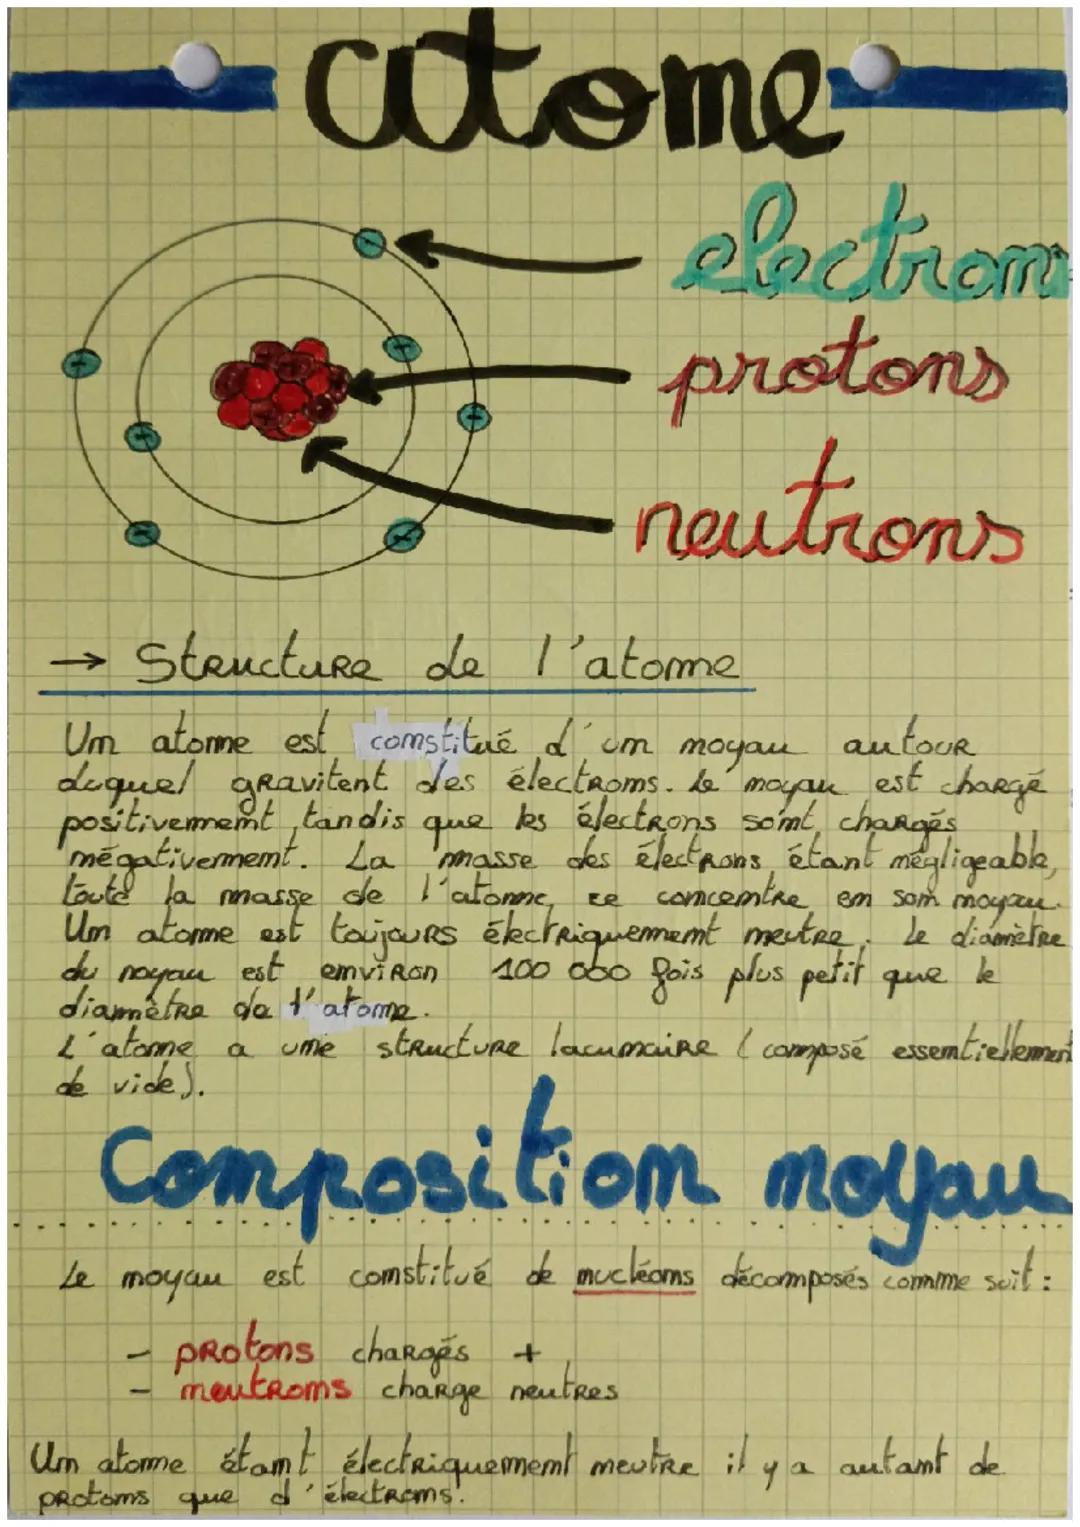 atome
electrons
protons
neutrons
→ Structure de l'atome
Un atome est constitué d'un noyau autour
duquel gravitent des électrons. Le noyau est chargé
positivement, tandis que les électrons sont chargés
négativement. La masse des électrons étant négligeable,
toute la masse de l'atome ce concentre en son noyau.
Un atome est toujours électriquement neutre. Le diamètre
du noyau est environ 100 000 fois plus petit que le
diamètre de l'atome.
L'atome a une structure lacunaire (composé essentiellement
de vide).
Composition noyau
Le noyau est constitué de nucléons décomposés comme suit :
- protons chargés +
- neutrons charge neutres
Un atome étant électriquement neutre il y a autant de
protons que d'électrons.